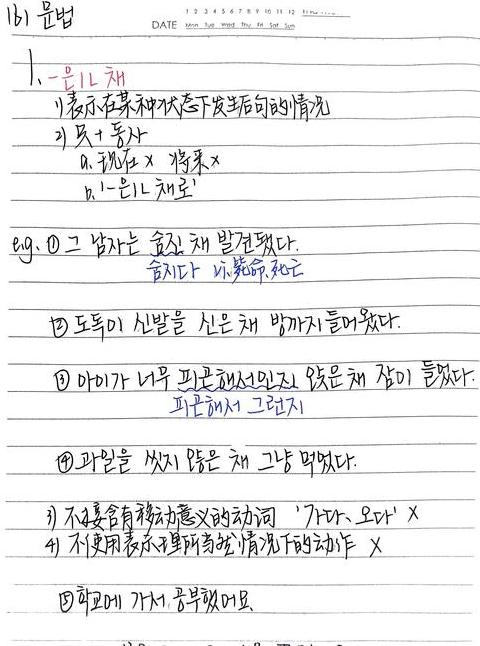 1b) 문법
DATE
1 2 3 4 5 6 7 8 9 10 11 12
Mon Tue Wed Thu Fri Sat Sun
1. -은/ㄴ 채
1) 表示在某种状态下发生后句的情况
2) 只+동사
a. 现在 x 将来 x
b. '-은/ㄴ 채로'
e.g. ① 그 남자는 숨진 채 발견됐다.
숨지다 vi. 毙命, 死亡
② 도둑이 신발을 신은 채 방까지 들어왔다.
③ 아이가 너무 피곤해서인지 앉은 채 잠이 들었다.
피곤해서 그런지
④ 과일을 씻지 않은 채 그냥 먹었다.
3) 不接含有移动意义的动词 '가다、오다' X
4) 不使用表示理所当然情况下的动作 X
⑤ 학교에 가서 공부했어요.